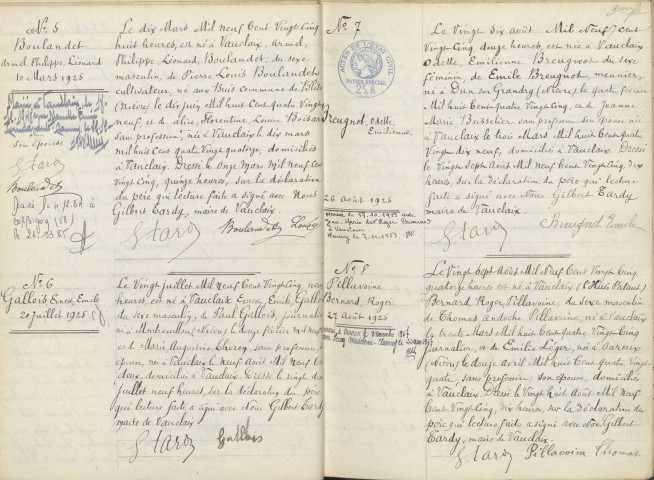 No 5
Boulandet
Armel, Philippe, Léonard
10 Mars 1925
son épouse
GTardy
Boulandet
le 26.03.85
Le dix Mars Mil neuf Cent Vingt Cinq
huit heures, est né à Vauclaix, Armel,
Philippe, Léonard, Boulandet, du sexe
masculin, de Pierre Louis Boulandet
cultivateur, né aux Buis commune de
(Nièvre) le dix juin Mil huit Cent quatre Vingt
neuf, et de Alice, Florentine, Louise Boisard
sans profession, née à Vauclaix le dix mars
mil huit Cent quatre Vingt quatorze, domiciliés
à Vauclaix. Dressé le onze Mars Mil neuf Cent
Vingt Cinq, quinze heures, sur la déclaration
du père qui lecture faite a signé avec Nous
Gilbert Tardy, maire de Vauclaix.
GTardy Boulandet Louis
No 6
Gallois, Ernest, Emile
20 juillet 1925
Le Vingt juillet Mil neuf Cent Vingt Cinq neuf
heures, est né à Vauclaix Ernest, Emile, Gallois
du sexe masculin, de Paul Gallois, journalier
né à Montreuillon (Nièvre) février Mil neuf Cent
et de Marie Augustine sans profession
épouse, née à Vauclaix le neuf Août Mil neuf Cent
deux, domiciliés à Vauclaix. Dressé le vingt
juillet neuf heures, sur la déclaration du père
qui lecture faite a signé avec Nous Gilbert Tardy
maire de Vauclaix
GTardy Gallois
No 7
ACTES DE L'ÉTAT CIVIL
PAPIER SPÉCIAL
Breugnot, Odette,
Emilienne
26 Août 1925
Le Vingt dix août Mil Neuf Cent
Vingt Cinq, douze heures, est née à Vauclaix
Odette, Emilienne Breugnot du sexe
féminin, de Emile Breugnot, meunier,
né à Dun sur Grandry (Nièvre) le quatre février
Mil huit Cent quatre Vingt Cinq, et de Jeanne
Marie sans profession son épouse née
à Vauclaix le trois Mars Mil huit Cent quatre
Vingt dix neuf, domiciliés à Vauclaix. Dressé
le Vingt Sept Août Mil neuf Cent Vingt Cinq, dix
heures, sur la déclaration du père qui lecture
faite a signé avec Nous Gilbert Tardy
maire de Vauclaix.
GTardy Breugnot Emile
No 8
Pillavoine
Bernard, Roger
27 Août 1925
Le Vingt Sept Août Mil Neuf Cent Vingt Cinq,
quatorze heures est né à Vauclaix
Bernard, Roger, Pillavoine, du sexe masculin
de Thomas Andoche Pillavoine, né à Vauclaix
le trente Mars Mil huit Cent quatre Vingt Cinq
journalier, et de Emilie Léger, née à Ouroux
(Nièvre) le douze avril Mil huit Cent quatre Vingt
quatre, sans profession son épouse, domiciliés
à Vauclaix. Dressé le Vingt huit Août Mil neuf
Cent Vingt Cinq, dix heures, sur la déclaration du
père qui lecture faite a signé avec Nous Gilbert
Tardy, maire de Vauclaix.
GTardy Pillavoine Thomas